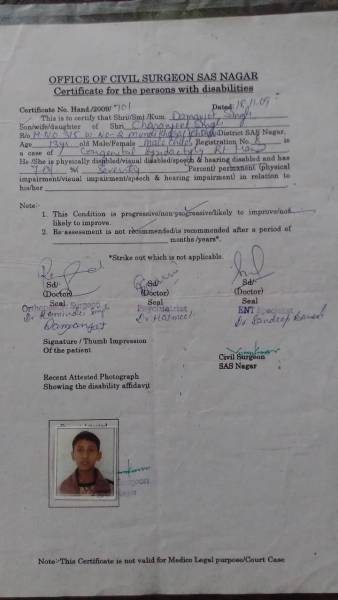 OFFICE OF CIVIL SURGEON SAS NAGAR
Certificate for the persons with disabilities
Certificate No. Hand./2009/ 701 Dated 18/11/09
This is to certify that Shri/Smt/Kum Damanjeet Singh
Son/wife/daughter of Shri Charanjeet Singh
R/o H.NO. W.No-2 District SAS Nagar,
Age 13yrs old Male/Female Male Registration No. is
a case of Congenital
He/She is physically disabled/visual disabled/speech & hearing disabled and has
70% % Seventy Percent) permanent (physical
impairment/visual impairment/speech & hearing impairment) in relation to
his/her
Note:-
1. This Condition is progressive/non-progressive/likely to improve/not
likely to improve.
2. Re-assessment is not recommended/is recommended after a period of
months /years*.
*Strike out which is not applicable.
Sd/ Sd/ Sd/
(Doctor) (Doctor) (Doctor)
Seal Seal Seal
Surgeon Psychiatrist ENT Specialist
Dr Dr Dr Sandeep
Signature / Thumb Impression
Of the patient
Civil Surgeon
SAS Nagar
Recent Attested Photograph
Showing the disability affidavit
Note:-This Certificate is not valid for Medico Legal purpose/Court Case